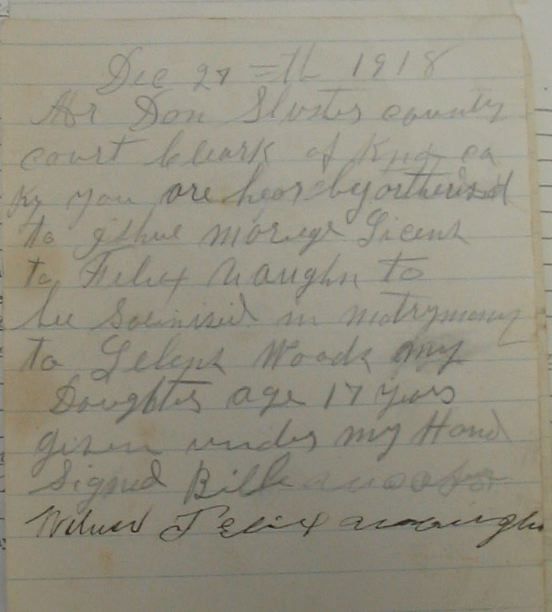 Dec 27 =th 1918
Mr Don Sluster county
court Cleark of Knox co
Ky you are hearby ortherised
to ishue marege Licens
to Felix Vaughn to
be Solmised in matrymony
to Woods my
Doughter age 17 years
given under my Hand
Signed Bill woods
Felix Vaughn